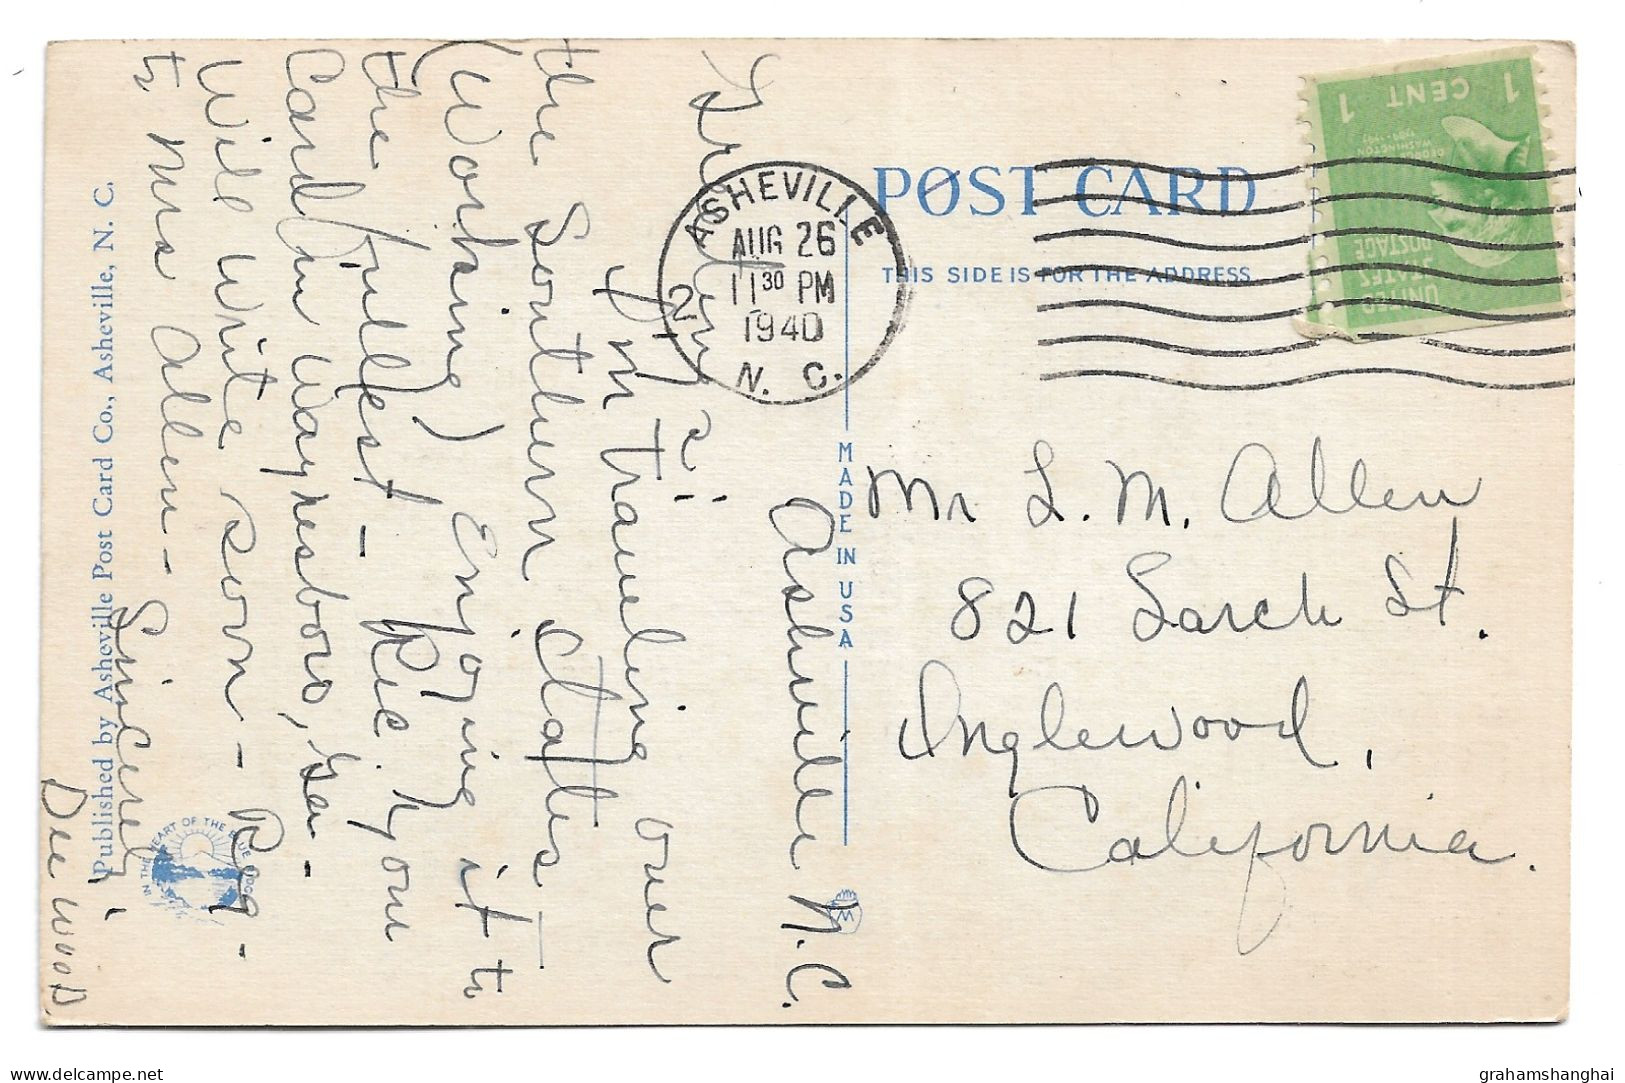 POST CARD
THIS SIDE IS FOR THE ADDRESS
ASHEVILLE
AUG 26
11 30 PM
1940
N. C.
2
1 CENT 1
GEORGE WASHINGTON
1789-1797
UNITED
STATES
POSTAGE
Mr L. M. Allen
821 Larch St.
Inglewood,
California.
MADE IN USA
Asheville N.C.
Friday
I'm traveling over
the Southern States -
(Working) Enjoying it to
the fullest - Rec. your
Card in Waynesboro, Ga -
Will write soon - Reg -
to Mrs Allen - Sincerely,
Dee Wood
Published by Asheville Post Card Co., Asheville, N. C.
IN THE HEART OF THE BLUE RIDGE
grahamshanghai
delcampe.net